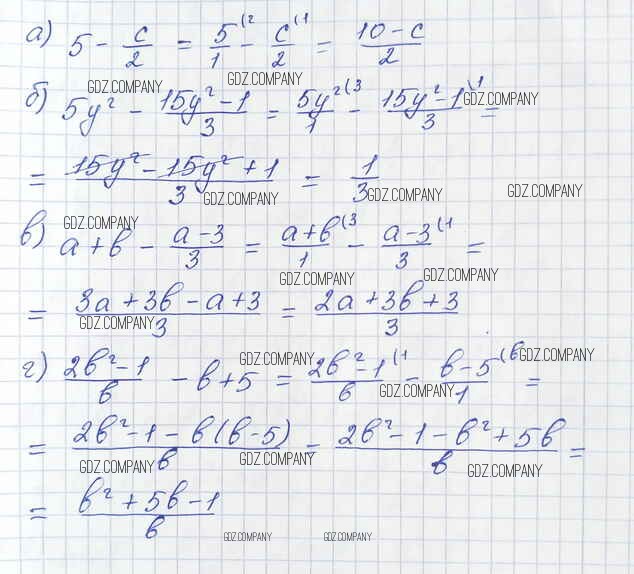 а) 5 - c/2 = 5/1 (2 - c/2 (1 = 10-c/2
GDZ.COMPANY GDZ.COMPANY
б) 5y² - 15y²-1/3 = 5y²/1 (3 - 15y²-1/3 (1 =
GDZ.COMPANY
= 15y²-15y²+1/3 = 1/3
GDZ.COMPANY GDZ.COMPANY GDZ.COMPANY
GDZ.COMPANY
в) a+b - a-3/3 = a+b/1 (3 - a-3/3 (1 =
GDZ.COMPANY GDZ.COMPANY
= 3a+3b-a+3/3 = 2a+3b+3/3
GDZ.COMPANY
г) 2b²-1/b - b+5 = 2b²-1/b (1 - b-5/1 (b =
GDZ.COMPANY GDZ.COMPANY GDZ.COMPANY
= 2b²-1-b(b-5)/b = 2b²-1-b²+5b/b =
GDZ.COMPANY GDZ.COMPANY GDZ.COMPANY
= b²+5b-1/b
GDZ.COMPANY GDZ.COMPANY